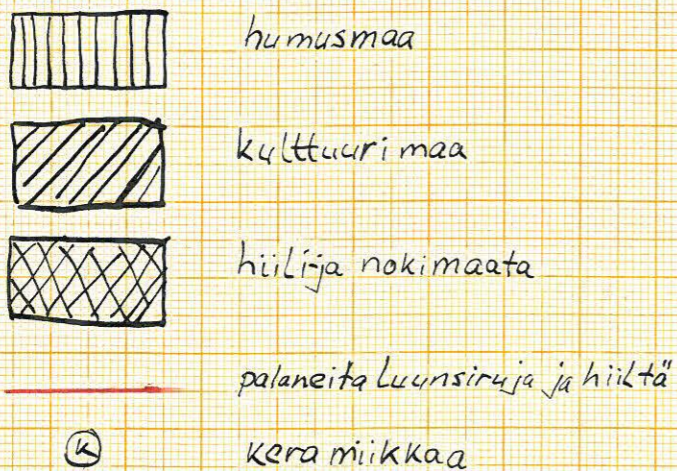 humusmaa
kulttuurimaa
hiili-ja nokimaata
palaneita luunsiruja ja hiiltä
K keramiikkaa